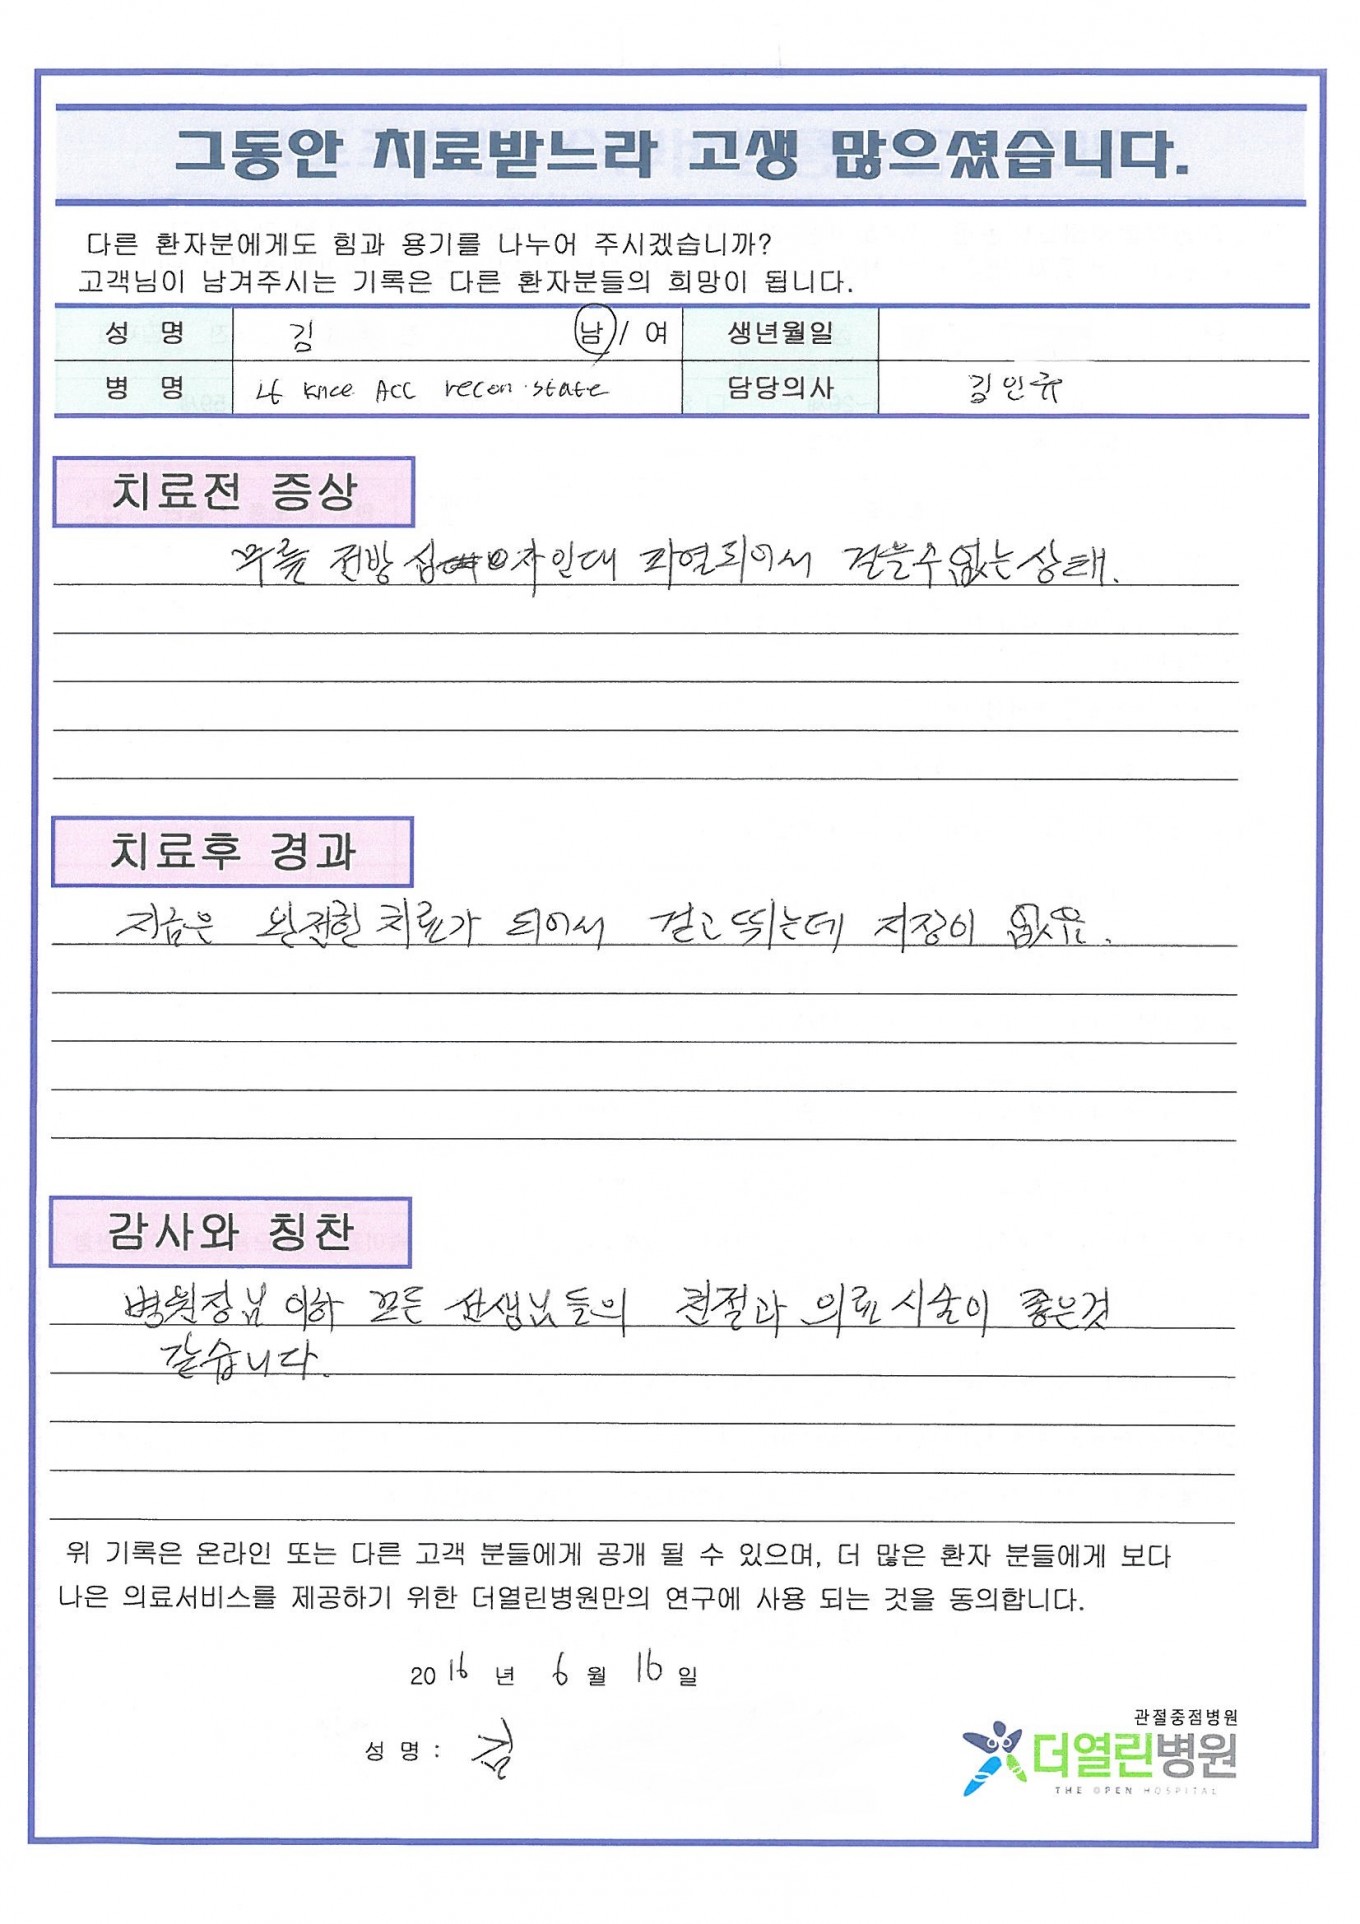 그동안 치료받느라 고생 많으셨습니다.
다른 환자분에게도 힘과 용기를 나누어 주시겠습니까?
고객님이 남겨주시는 기록은 다른 환자분들의 희망이 됩니다.
성 명 김 남 / 여 생년월일
병 명 Lt knee ACC recon state 담당의사 김인규
치료전 증상
무릎 전방 십자인대 파열되어서 걸을수 없는 상태.
치료후 경과
지금은 완전한 치료가 되어서 걷고 뛰는데 지장이 없음.
감사와 칭찬
병원장님 이하 모든 선생님들의 친절과 의료시술이 좋은것
같습니다.
위 기록은 온라인 또는 다른 고객 분들에게 공개 될 수 있으며, 더 많은 환자 분들에게 보다
나은 의료서비스를 제공하기 위한 더열린병원만의 연구에 사용 되는 것을 동의합니다.
2016 년 6 월 16 일
성 명 : 김
관절중점병원
더열린병원
THE OPEN HOSPITAL